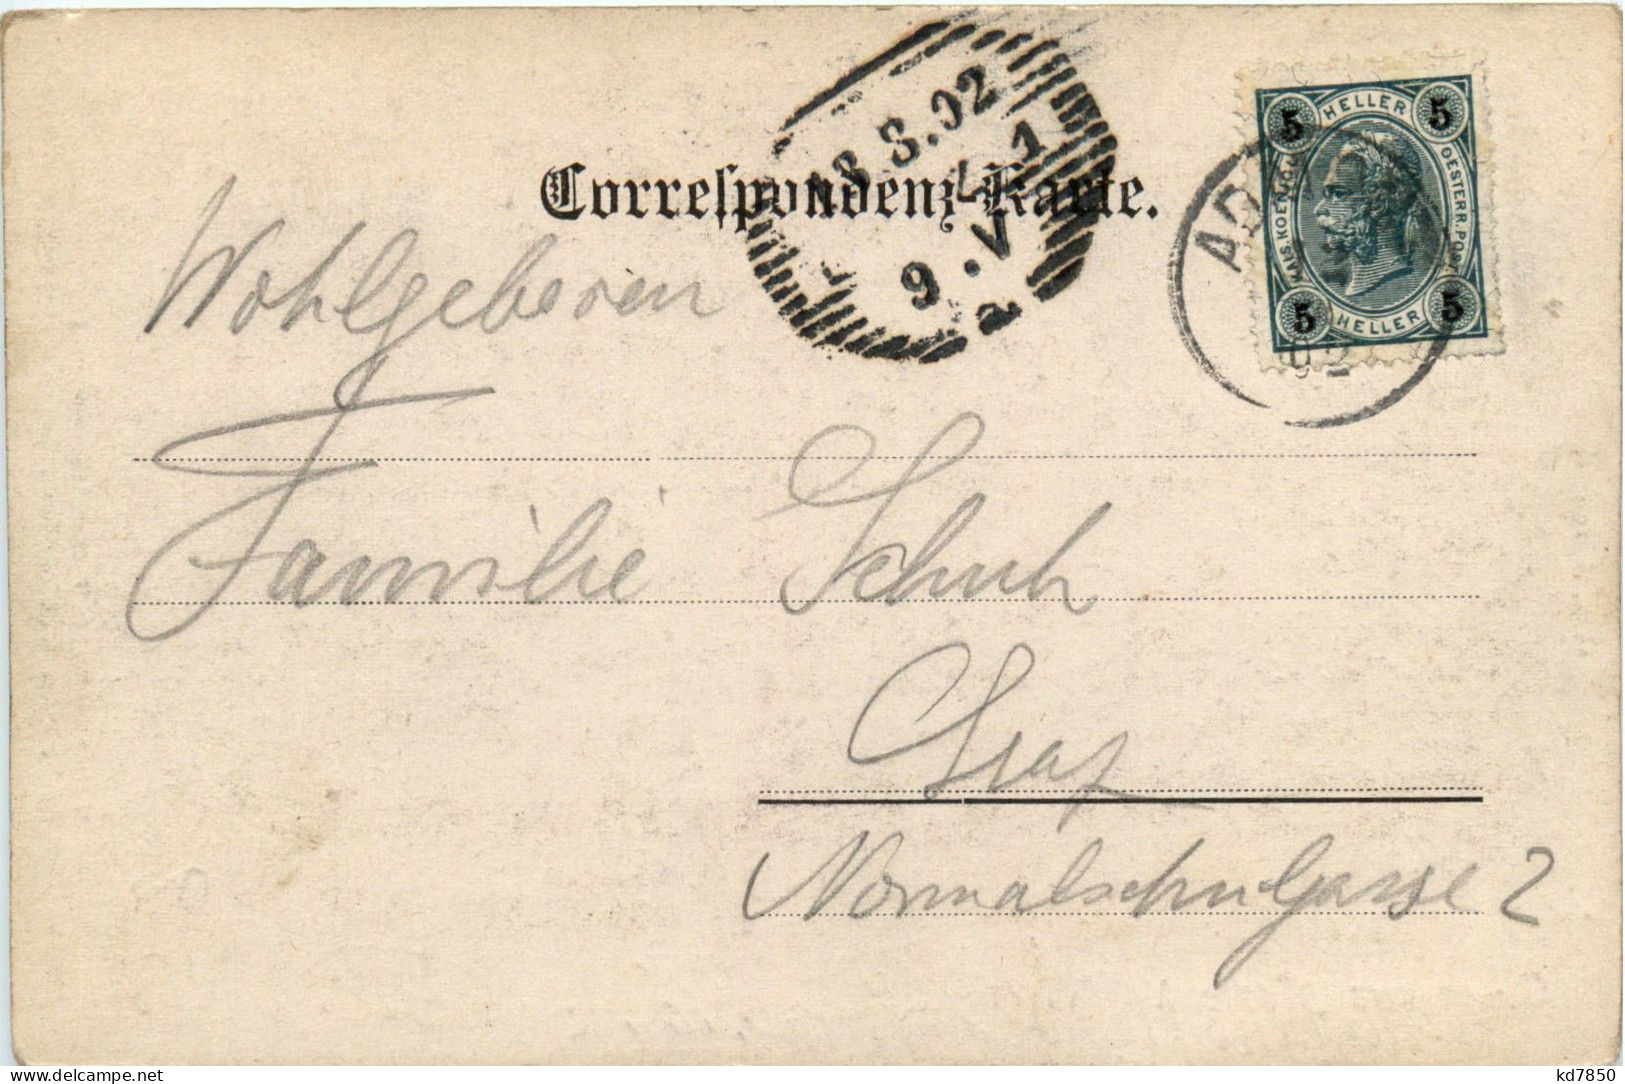 Correspondenz-Karte.
18 8.02
9.V
5 HELLER 5
KAIS.KOENIGL. OESTERR.POST
5 HELLER 5
AD
02
Wohlgeboren
Familie Schuh
Graz
Normalschulgasse 2
www.delcampe.net
kd7850